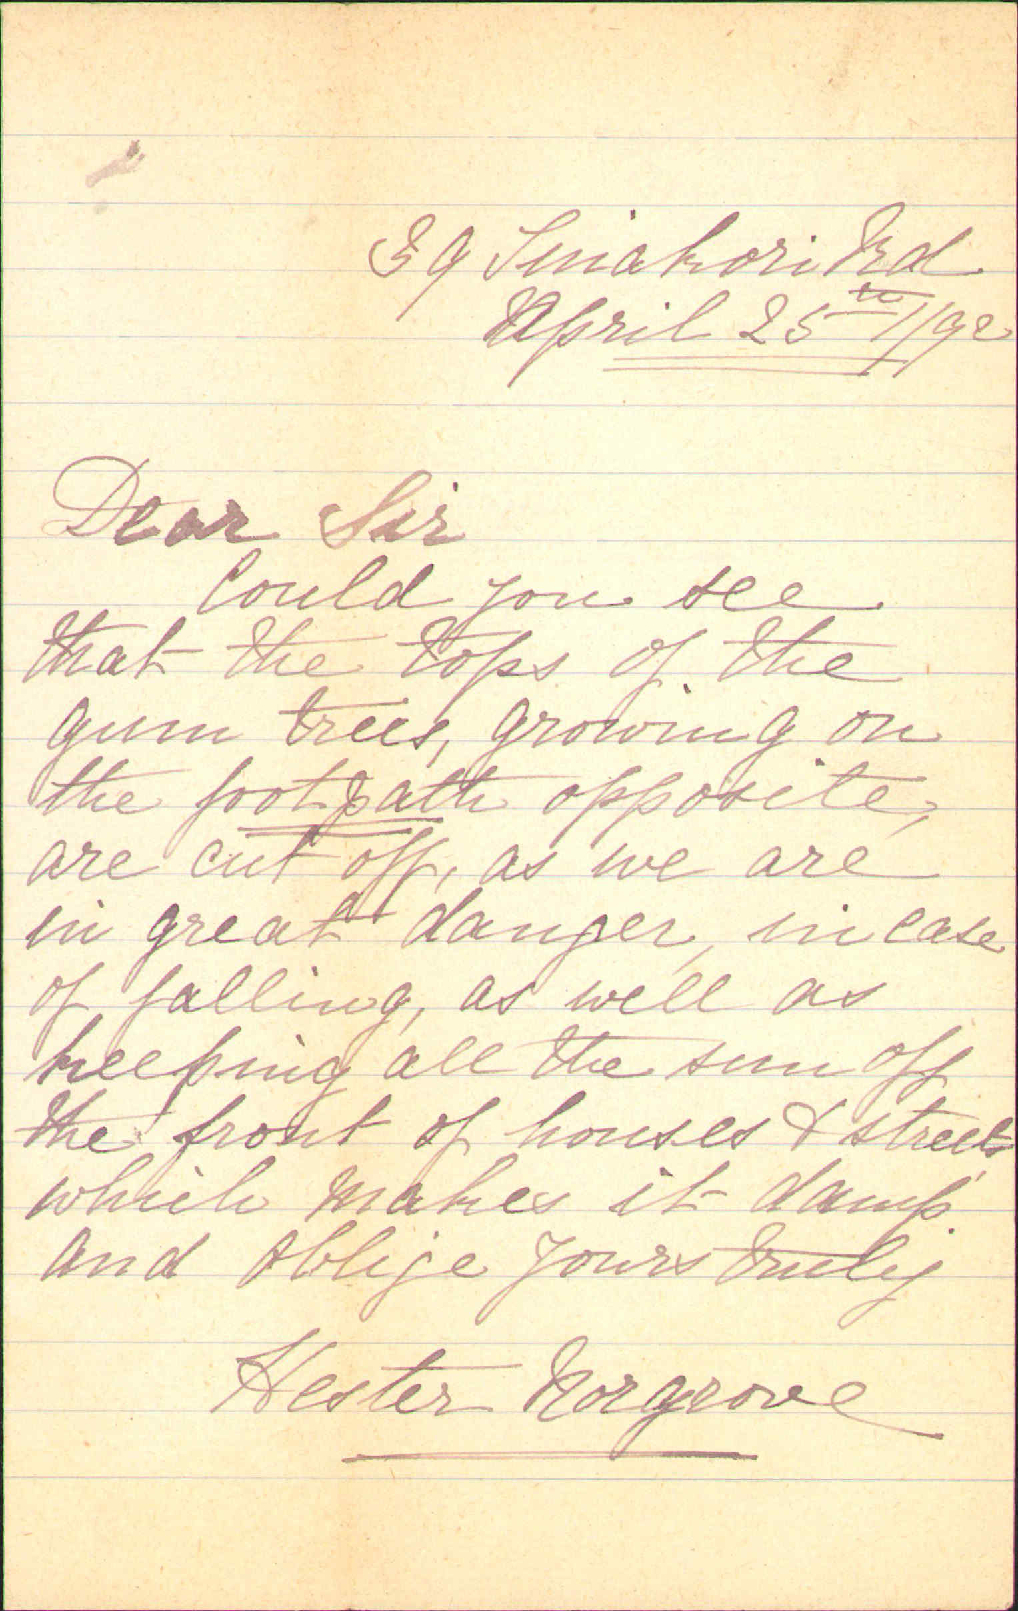 39 Tinakori Rd
April 25th/92
Dear Sir
Could you see
that the tops of the
gum trees, growing on
the footpath opposite,
are cut off, as we are
in great danger, in case
of falling, as well as
keeping all the sun off
the front of houses & street,
which makes it damp.
and oblige yours truly
Hester Norgrove